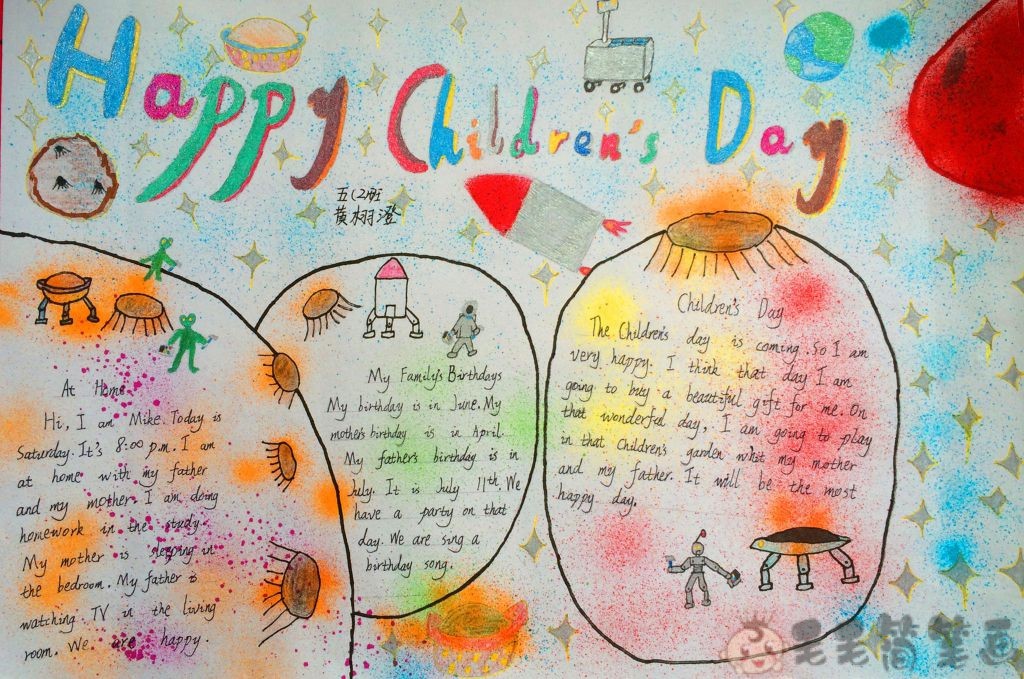 Happy Children's Day
五(2)班
黄栩澄
At Home
Hi, I am Mike. Today is
Saturday. It's 8:00 p.m. I am
at home with my father
and my mother. I am doing
homework in the study.
My mother is sleeping in
the bedroom. My father is
watching TV in the living
room. We are happy.
My Family's Birthdays
My birthday is in June. My
mother's birthday is in April.
My father's birthday is in
July. It is July 11th. We
have a party on that
day. We are sing a
birthday song.
Children's Day
The Children's day is coming. So I am
very happy. I think that day I am
going to buy a beautiful gift for me. On
that wonderful day, I am going to play
in that Children's garden whit my mother
and my father. It will be the most
happy day.
毛毛简笔画